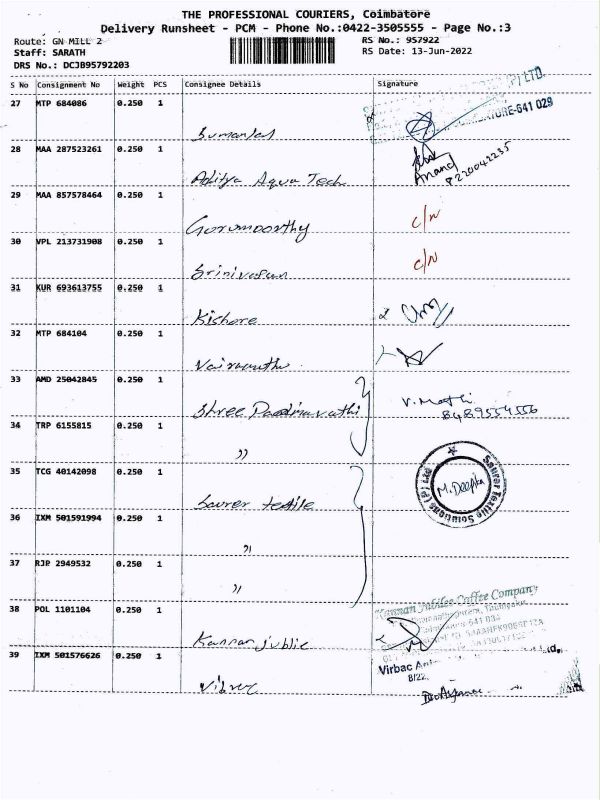 THE PROFESSIONAL COURIERS, Coimbatore
Delivery Runsheet - PCM - Phone No.:0422-3505555 - Page No.:3
Route: GN MILL 2
RS No.: 957922
Staff: SARATH
RS Date: 13-Jun-2022
DRS No.: DCJB95792203
S No Consignment No Weight PCS Consignee Details Signature
27 MTP 684086 0.250 1
PVT LTD.
641 029
28 MAA 287523261 0.250 1
Aditya Aqua Tech
Anand
8220042235
29 MAA 857578464 0.250 1
Gorumoorthy
c/n
30 VPL 213731908 0.250 1
Srinivasan
c/n
31 KUR 693613755 0.250 1
Kishore
32 MTP 684104 0.250 1
33 AMD 25042845 0.250 1
Shree
V. Mathi
8489554556
34 TRP 6155815 0.250 1
"
35 TCG 40142098 0.250 1
Saurer textile
M. Deepka
Saurer Textile Solutions (P) Ltd
36 IXM 501591994 0.250 1
"
37 RJP 2949532 0.250 1
"
38 POL 1101104 0.250 1
Kannan Jublie
Kannan Jubilee Coffee Company
39 IXM 501576626 0.250 1
Virbac
Virbac
8/22,